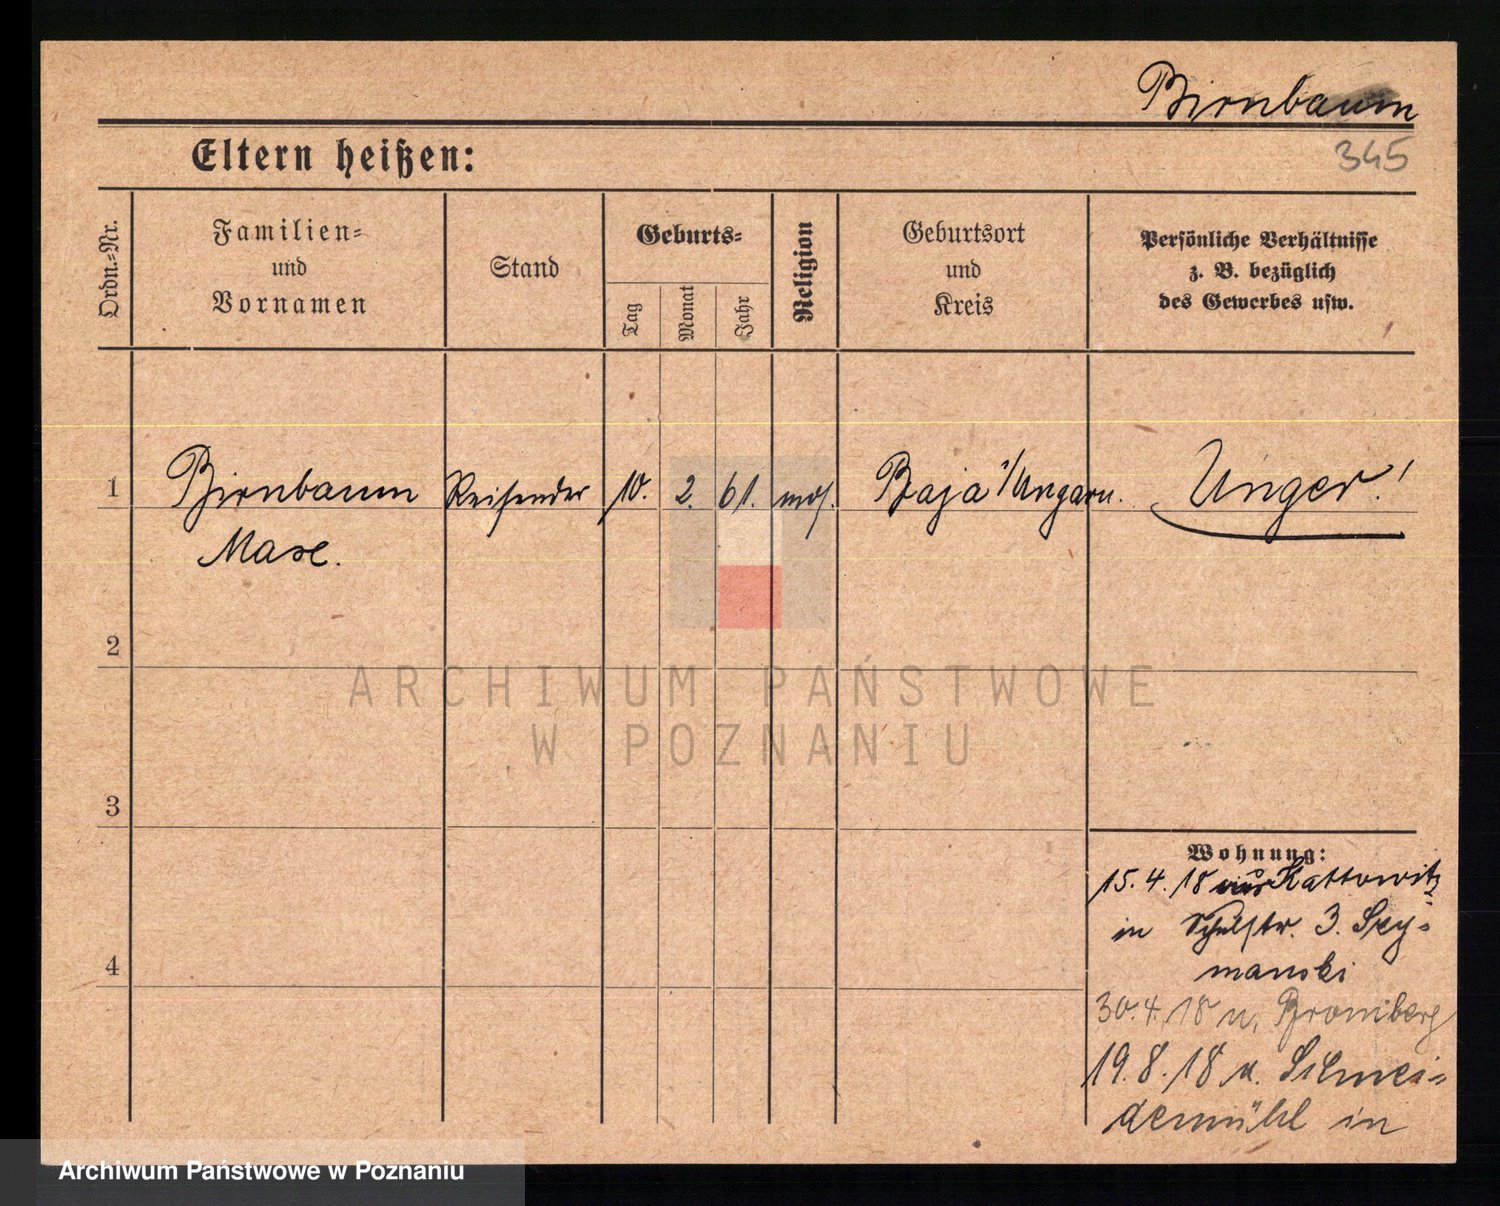 Birnbaum
345
Eltern heißen:
Ordn.-Nr.
Familien-
und
Vornamen
Stand
Geburts-
Tag
Monat
Jahr
Religion
Geburtsort
und
Kreis
Persönliche Verhältnisse
z. B. bezüglich
des Gewerbes usw.
1 Birnbaum Reisender 10. 2. 61. mos. Baja i/Ungarn. Unger!
Maxe.
2
3
4
Wohnung:
15.4.18 aus Kattowitz
in Schulstr. 3. Szy-
manski
30.4.18 n. Bromberg
19.8.18 a. Schnei-
demühl in
ARCHIWUM PAŃSTWOWE
W POZNANIU
Archiwum Państwowe w Poznaniu